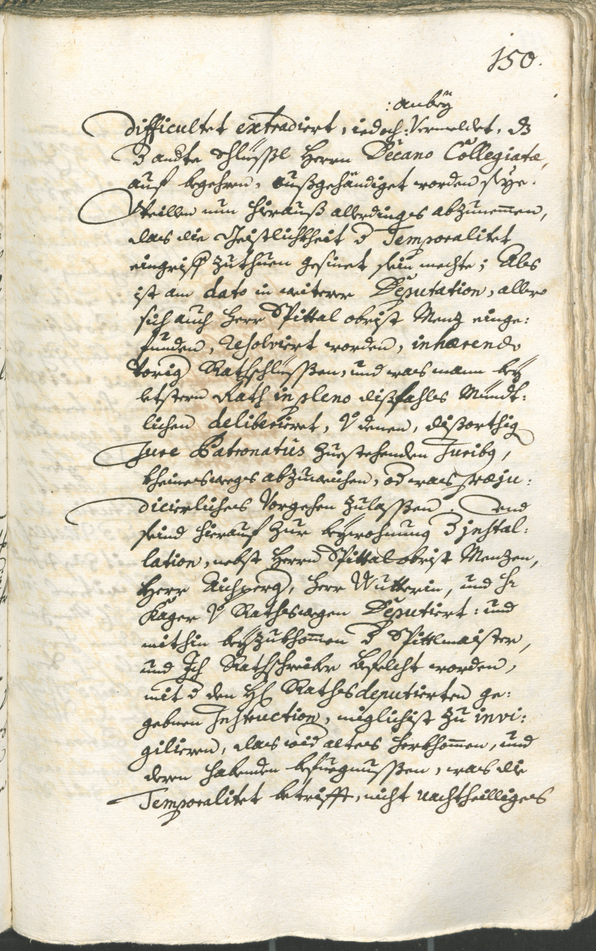 150.
: anbey
difficultet extradiert, iedoch: Vermeldet, dz
andte Schlüssl Herrn Decano Collegiatæ,
auf begehren, außgehändiget worden seye.
Weillen nun hierauß allerdinges abzunemmen,
das die Geistlichkheit d Temporalitet
eingriff zuthuen gesinet sein mechte; Als
ist am dato in weiterer Deputation, allwo
sich auch Herr Spittal obrist Menz einge:
funden, resolviert worden, inhærendo
vorig Rathschlüssen, und was mann bey
letstern Rath in pleno dißfahls Mündt:
lichen deliberieret, denen, dißorthig
Jure Patronatus zuestehenden Juribus,
kheineswegs abzuweichen, od was præju:
dicierliches Vorgehen zulassen. Und
seind hierauf zur beywohnung instal:
lation, nebst Herrn Spittal obrist Menzen,
Herr Aichperg, Herr Wutterin, und H:
Kager Rathswegen Deputiert: und
mithin beyzukhommen Spittlmaister,
und Ich Rathschreiber befelcht worden,
mit den Rathsdeputierten ge:
gebnen Instruction, möglichist zu invi:
gilieren, das wid altes herkhommen, und
deren habenden befuegnussen, was die
Temporalitet betrifft, nicht nachtheilliges